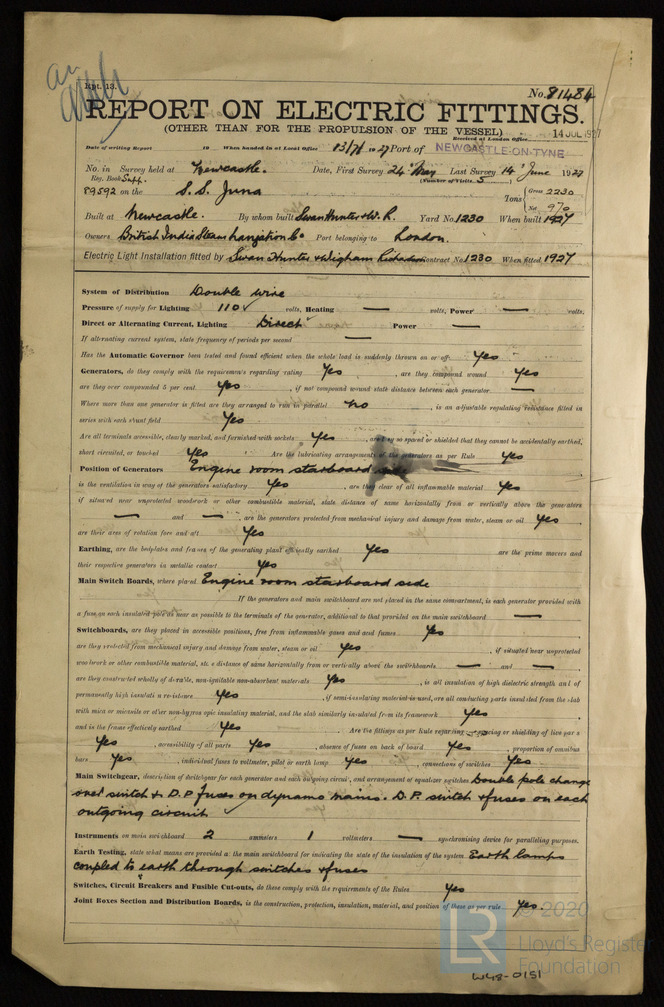 Rpt. 13.
No. 81484
REPORT ON ELECTRIC FITTINGS.
(OTHER THAN FOR THE PROPULSION OF THE VESSEL)
Received at London Office 14 JUL 1927
Date of writing Report 19 When handed in at Local Office 13/7/1927 Port of NEWCASTLE-ON-TYNE
No. in Survey held at Newcastle. Date, First Survey 24 May Last Survey 14 June 1927
Reg. Book Supp. (Number of Visits 5)
89592 on the S.S. Juna Tons { Gross 2230 Net 970
Built at Newcastle. By whom built Swan Hunter & W. R. Yard No. 1230 When built 1927
Owners British India Steam Navigation Co Port belonging to London.
Electric Light Installation fitted by Swan Hunter & Wigham Richardson Contract No. 1230 When fitted 1927
System of Distribution Double wire
Pressure of supply for Lighting 110 volts, Heating — volts, Power — volts.
Direct or Alternating Current, Lighting Direct Power —
If alternating current system, state frequency of periods per second —
Has the Automatic Governor been tested and found efficient when the whole load is suddenly thrown on or off Yes
Generators, do they comply with the requirements regarding rating Yes, are they compound wound Yes
are they over compounded 5 per cent. Yes, if not compound wound state distance between each generator —
Where more than one generator is fitted are they arranged to run in parallel No, is an adjustable regulating resistance fitted in
series with each shunt field Yes
Are all terminals accessible, clearly marked, and furnished with sockets Yes, are they so spaced or shielded that they cannot be accidentally earthed,
short circuited, or touched Yes Are the lubricating arrangements of the generators as per Rule Yes
Position of Generators Engine room starboard side
is the ventilation in way of the generators satisfactory Yes, are they clear of all inflammable material Yes
if situated near unprotected woodwork or other combustible material, state distance of same horizontally from or vertically above the generators
— and —, are the generators protected from mechanical injury and damage from water, steam or oil Yes,
are their axes of rotation fore and aft Yes
Earthing, are the bedplates and frames of the generating plant efficiently earthed Yes are the prime movers and
their respective generators in metallic contact Yes
Main Switch Boards, where placed Engine room starboard side
If the generators and main switchboard are not placed in the same compartment, is each generator provided with
a fuse on each insulated pole as near as possible to the terminals of the generator, additional to that provided on the main switchboard —
Switchboards, are they placed in accessible positions, free from inflammable gases and acid fumes Yes
are they protected from mechanical injury and damage from water, steam or oil Yes, if situated near unprotected
woodwork or other combustible material, state distance of same horizontally from or vertically above the switchboards — and —
are they constructed wholly of durable, non-ignitable non-absorbent materials Yes, is all insulation of high dielectric strength and of
permanently high insulation resistance Yes, if semi-insulating material is used, are all conducting parts insulated from the slab
with mica or micanite or other non-hygroscopic insulating material, and the slab similarly insulated from its framework Yes
and is the frame effectively earthed Yes. Are the fittings as per Rule regarding:— spacing or shielding of live parts
Yes, accessibility of all parts Yes, absence of fuses on back of board Yes, proportion of omnibus
bars Yes, individual fuses to voltmeter, pilot or earth lamp Yes, connections of switches Yes
Main Switchgear, description of switchgear for each generator and each outgoing circuit, and arrangement of equalizer switches Double pole change
over switch & D.P fuses on dynamo mains. D.P. switch & fuses on each
outgoing circuit
Instruments on main switchboard 2 ammeters 1 voltmeters — synchronising device for paralleling purposes.
Earth Testing, state what means are provided at the main switchboard for indicating the state of the insulation of the system Earth lamps
coupled to earth through switches & fuses
Switches, Circuit Breakers and Fusible Cut-outs, do these comply with the requirements of the Rules Yes
Joint Boxes Section and Distribution Boards, is the construction, protection, insulation, material, and position of these as per rule Yes.
LR
© 2020
Lloyd's Register
Foundation
W48-0151